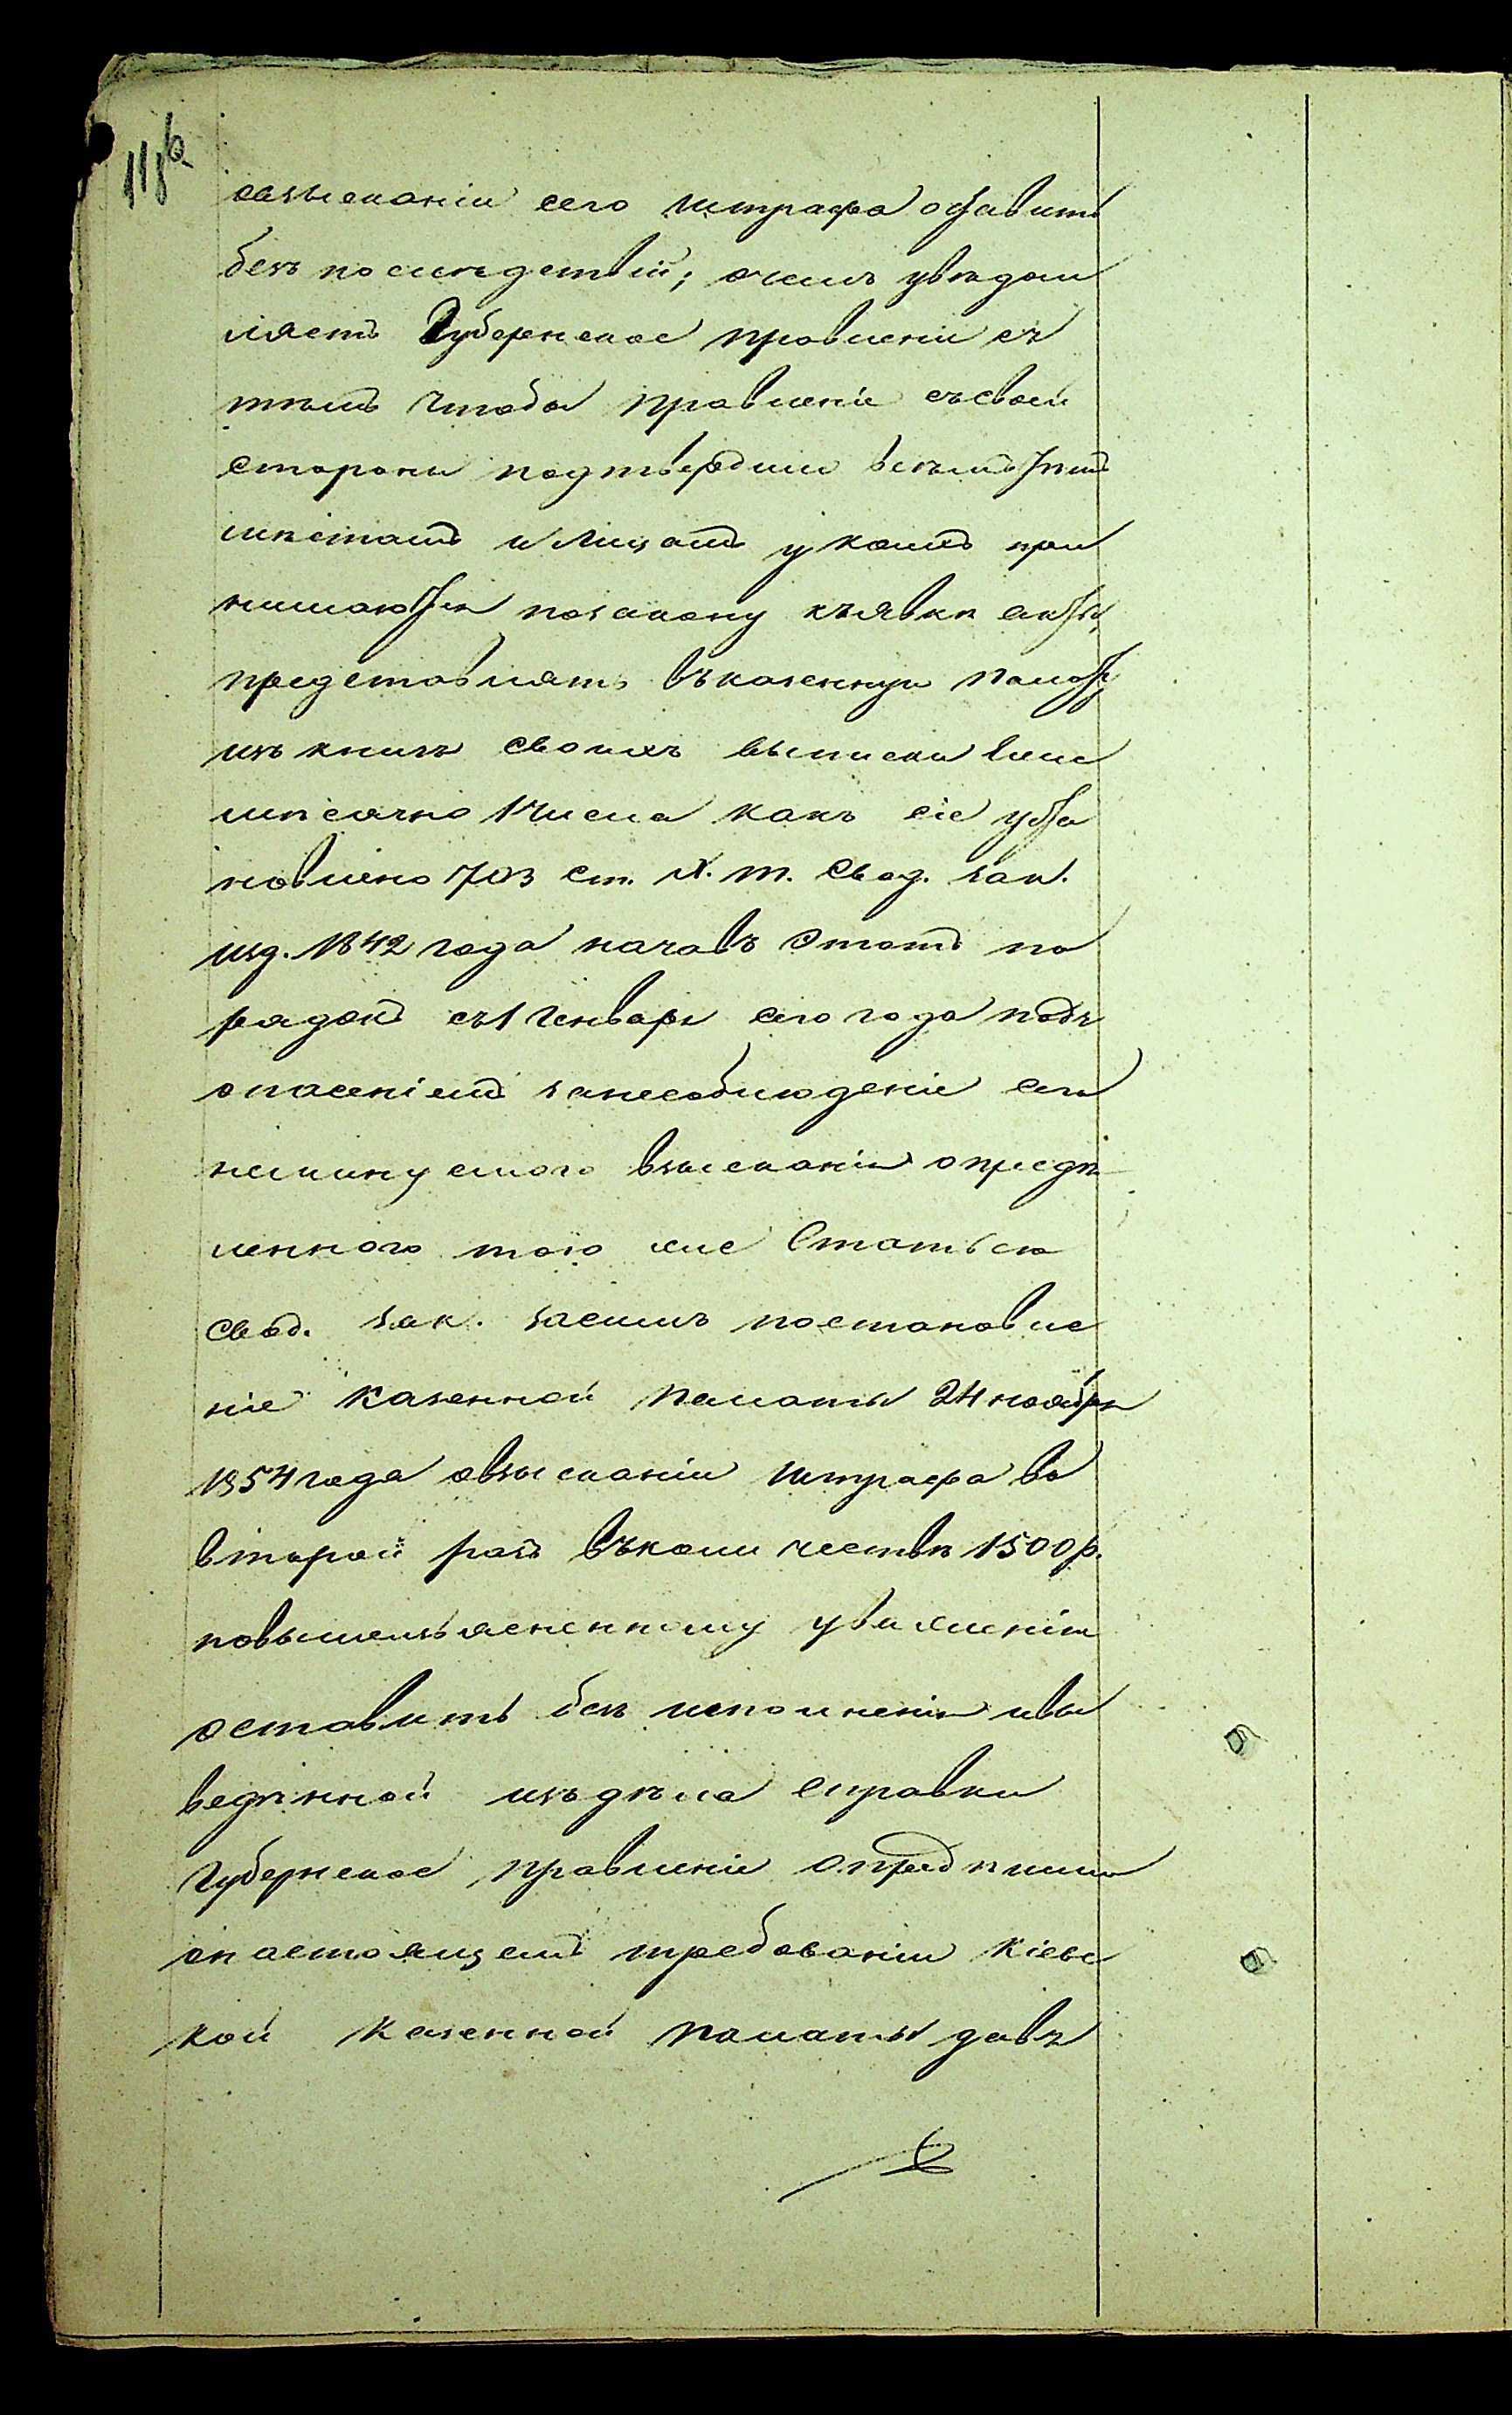 118б
овзысканіи сего штрафа оставить
безъ послѣдствій; очемъ увѣдом
ляетъ Губернское правленіе съ
тѣмъ чтобы правленіе съсвоей
стороны подтвердило всѣмъ тѣмъ
мѣстамъ и Лицамъ укоихъ при
нимаются позакону къявкѣ акты,
представлять въказенную палату
изъ книгъ своихъ выписки еже
мѣсячно 1 числа какъ сіе уста
новлено 703 ст. X. т. Свод. зак.
изд. 1842 года начавъ Этотъ по
рядокъ съ 1 Генваря сего года подъ
опасеніемъ занесоблюденіе сего
неминуемого взысканія опредѣ
леннаго тою же Статьею
Свод. зак. засимъ постановле
ніе Казенной Палаты 24 ноября
1854 года овзысканіи штрафа во
второй разъ въколичествѣ 1500 р.
повышеизъясненному уваженію
оставить безъ исполненія ивы
веденной изъдѣла Справки
Губернское правленіе опредѣлило
онастоящемъ требованіи Кіевс
кой Казенной Палаты давъ